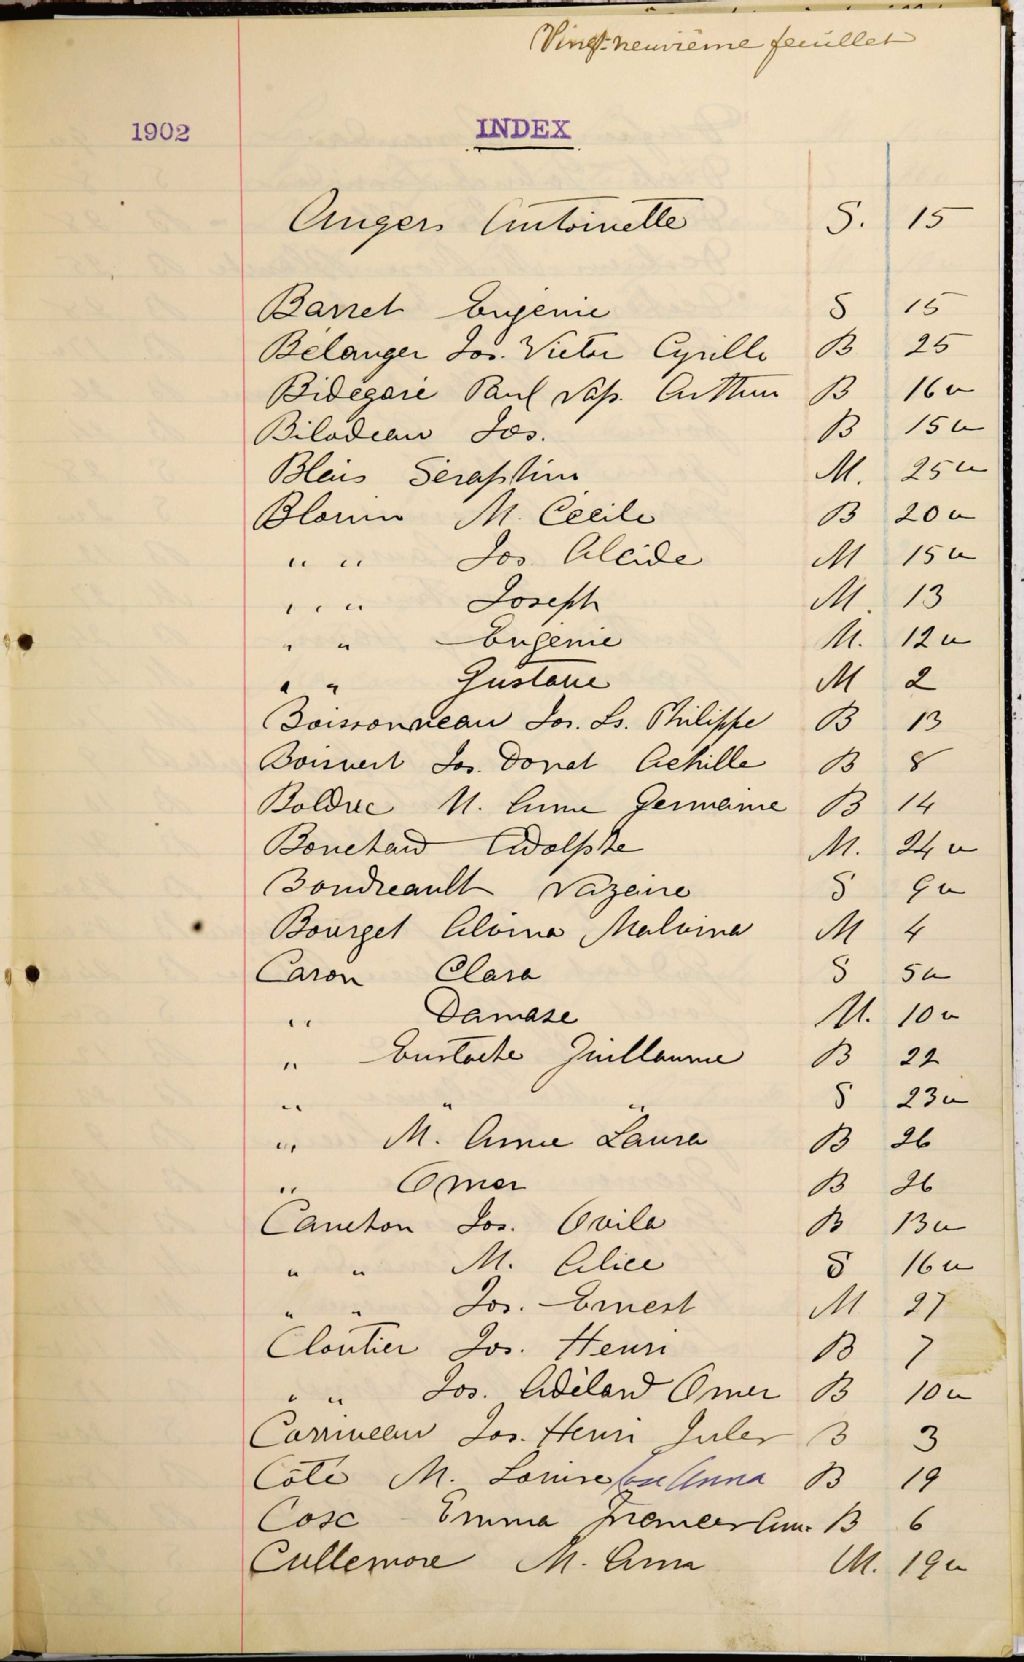 Vingt-neuvième feuillet
1902
INDEX
Angers Antoinette S. 15
Barret Eugénie S 15
Bélanger Jos. Victor Cyrille B 25
Bidégaré Paul Nap. Arthur B 16 v
Bilodeau Jos. B 15 v
Blais Séraphin M. 25 v
Blouin M. Cécile B 20 v
" " Jos Alcide M 15 v
" " Joseph M. 13
" " Eugénie M. 12 v
" " Gustave M 2
Boissonneau Jos. Ls. Philippe B 13
Boisvert Jos. Donat Achille B 8
Bolduc M. Anna Germaine B 14
Bouchard Adolphe M. 24 v
Boudreault Nazaire S 9 v
Bourget Alvina Malvina M 4
Caron Clara S 5 v
" Damase M. 10 v
" Eustache Guillaume B 22
" " " S 23 v
" M. Anna Laura B 26
" Omer B 26
Cauchon Jos. Ovila B 13 v
" " M. Alice S 16 v
" " Jos. Ernest M 27
Cloutier Jos. Henri B 7
" " Jos. Adélard Omer B 10 v
Corriveau Jos. Henri Jules B 3
Côté M. Louise Rose Anna B 19
Cosc Emma Frances Ann. B 6
Cullemore M. Anna M. 19 v